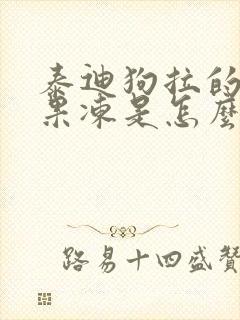 泰迪狗拉的
果凍是怎麼
路易十四盛贊